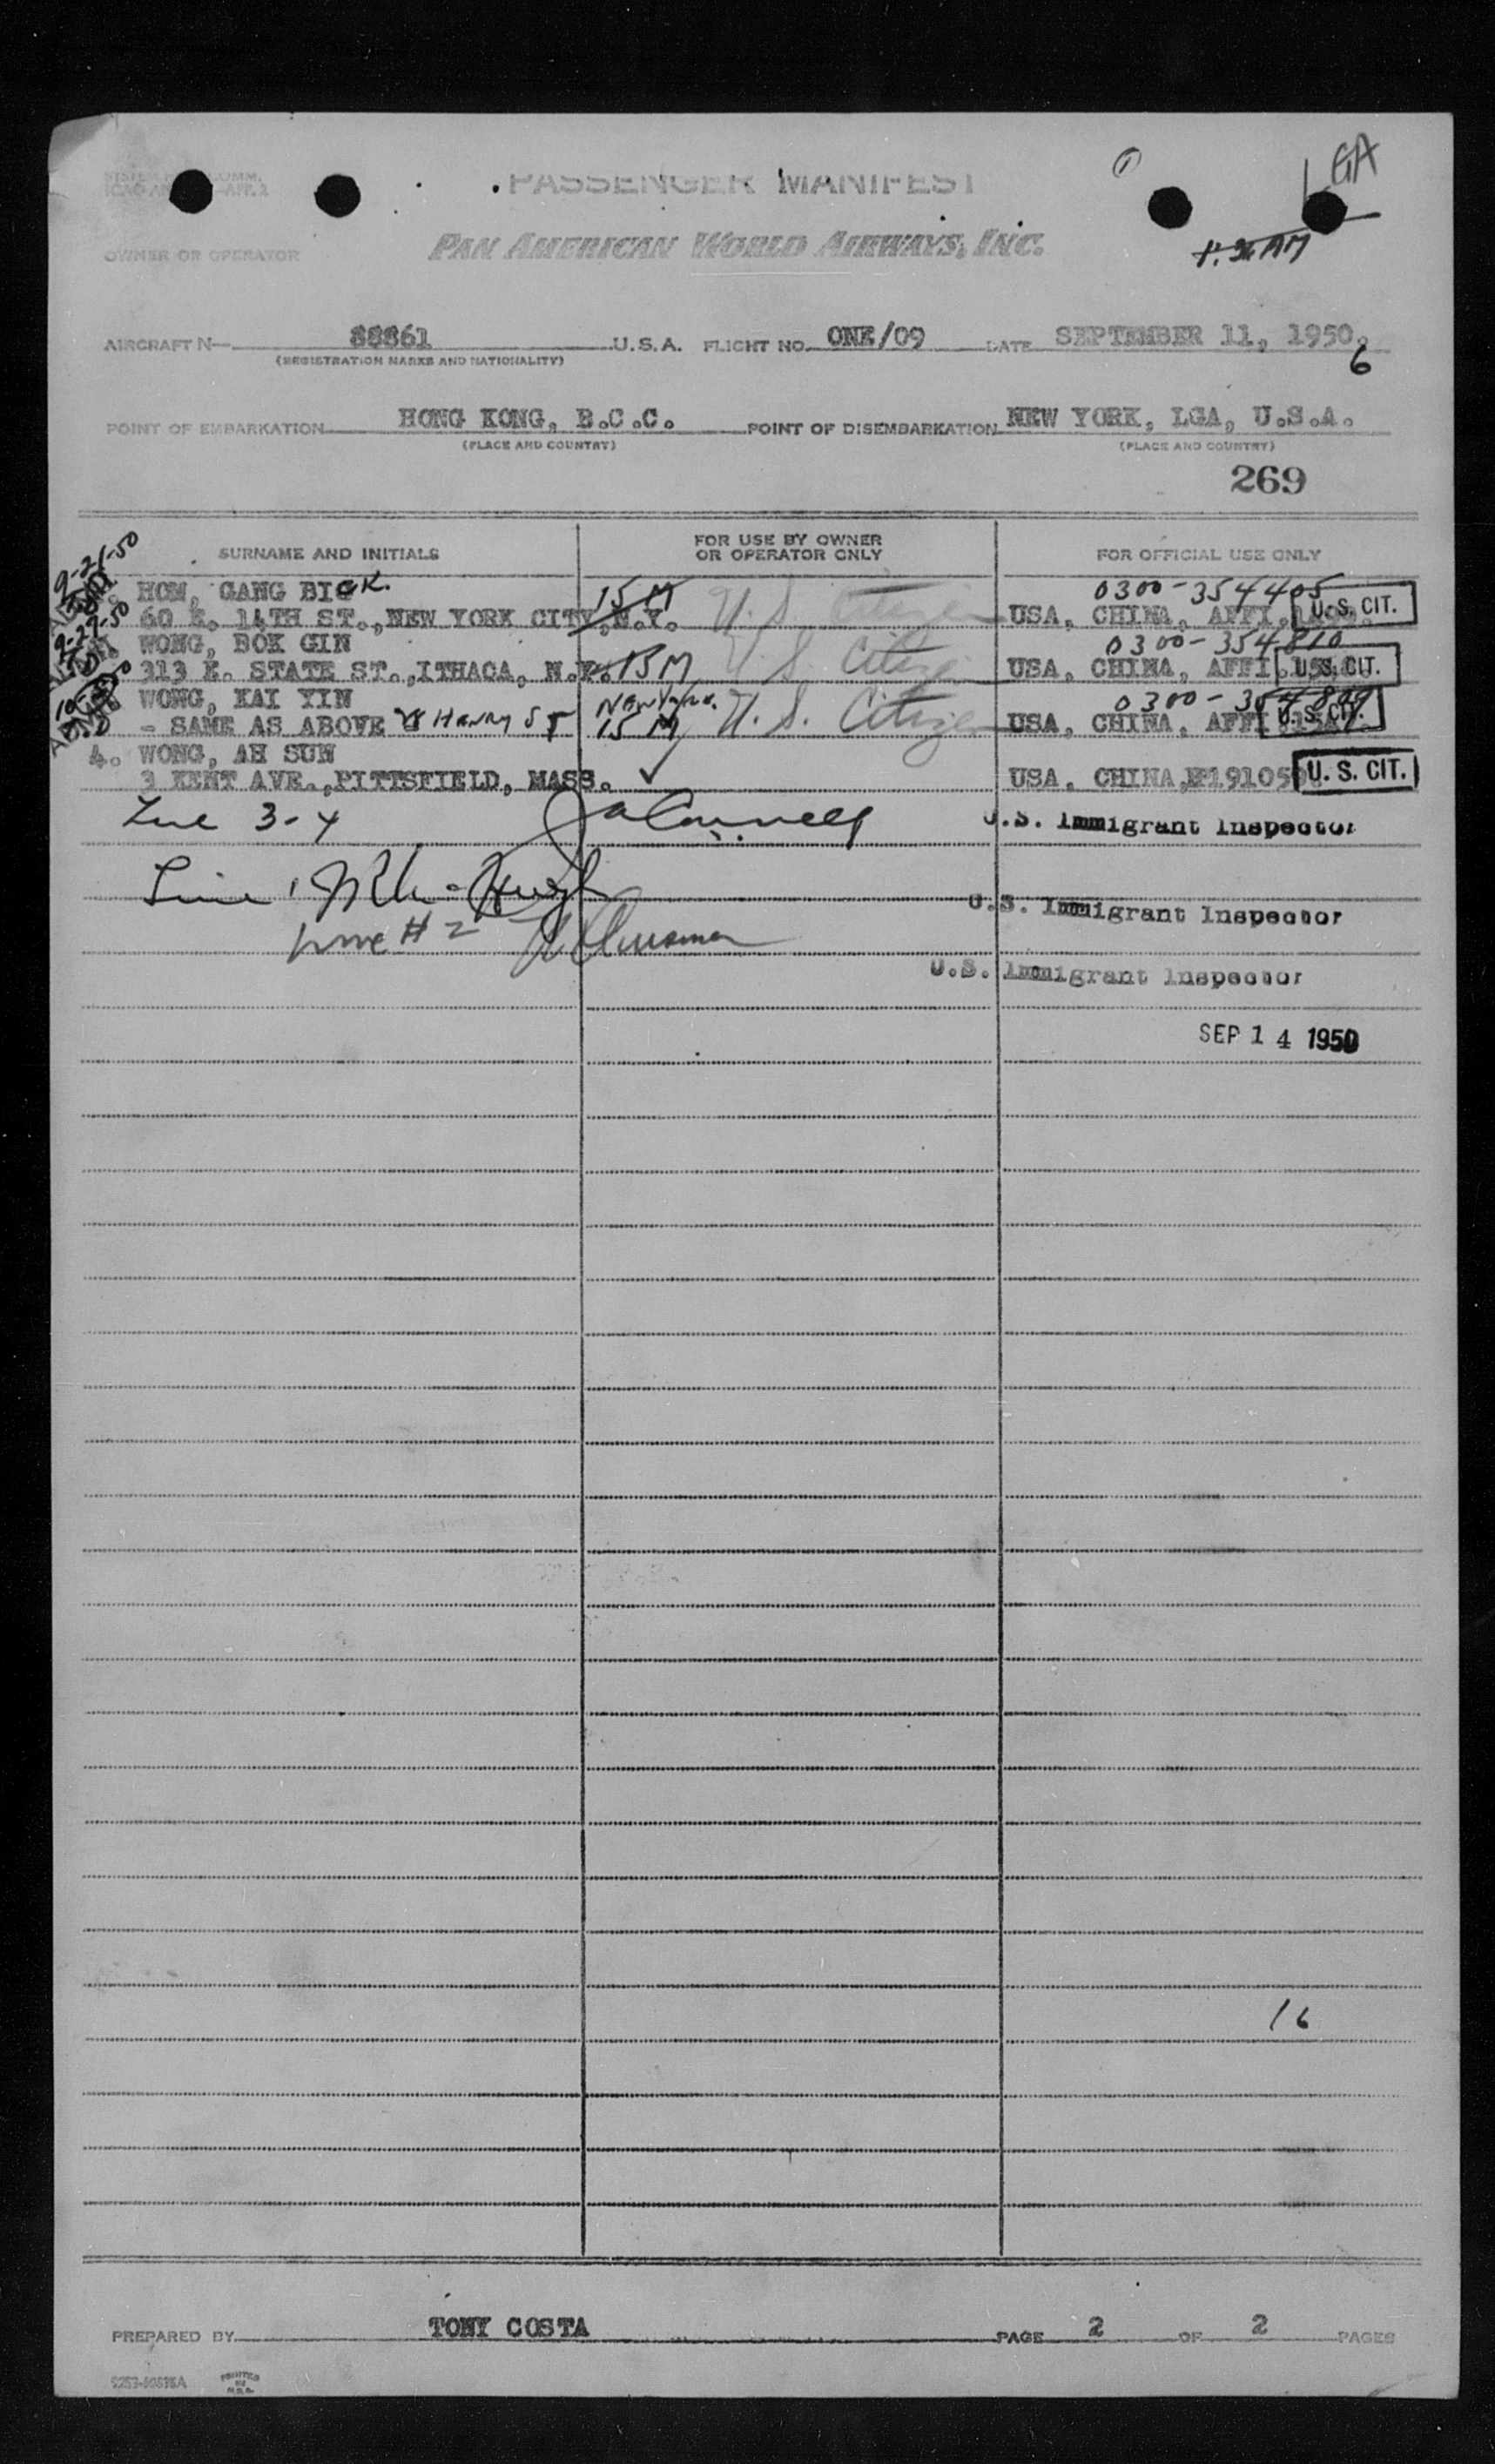 PASSENGER MANIFEST
PAN AMERICAN WORLD AIRWAYS, INC.
OWNER OR OPERATOR
AIRCRAFT N— 88861 U.S.A. FLIGHT NO. ONE/09 DATE SEPTEMBER 11, 1950.
(REGISTRATION MARKS AND NATIONALITY)
6
POINT OF EMBARKATION HONG KONG, B.C.C. POINT OF DISEMBARKATION NEW YORK, LGA, U.S.A.
(PLACE AND COUNTRY) (PLACE AND COUNTRY)
269
SURNAME AND INITIALS FOR USE BY OWNER OR OPERATOR ONLY FOR OFFICIAL USE ONLY
9-21-50
HOM, GANG BICK. 15 M U.S. Citizen 0300-354405
60 E. 14TH ST., NEW YORK CITY, N.Y. USA, CHINA, AFFI. U.S. CIT.
WONG, BOK GIN 0300-354810
313 E. STATE ST., ITHACA, N.Y. 15 M U.S. Citizen USA, CHINA, AFFI. U.S. CIT.
WONG, KAI YIN New York.
- SAME AS ABOVE Henry ST 15 M U.S. Citizen USA, CHINA, AFFI U.S. CIT.
4. WONG, AH SUN
3 KENT AVE., PITTSFIELD, MASS. ✓ USA, CHINA, U. S. CIT.
Line 3-4 U.S. Immigrant Inspector
Line 1 U.S. Immigrant Inspector
Line # 2
U.S. Immigrant Inspector
SEP 14 1950
16
PREPARED BY TONY COSTA PAGE 2 OF 2 PAGES
PRINTED IN U.S.A.